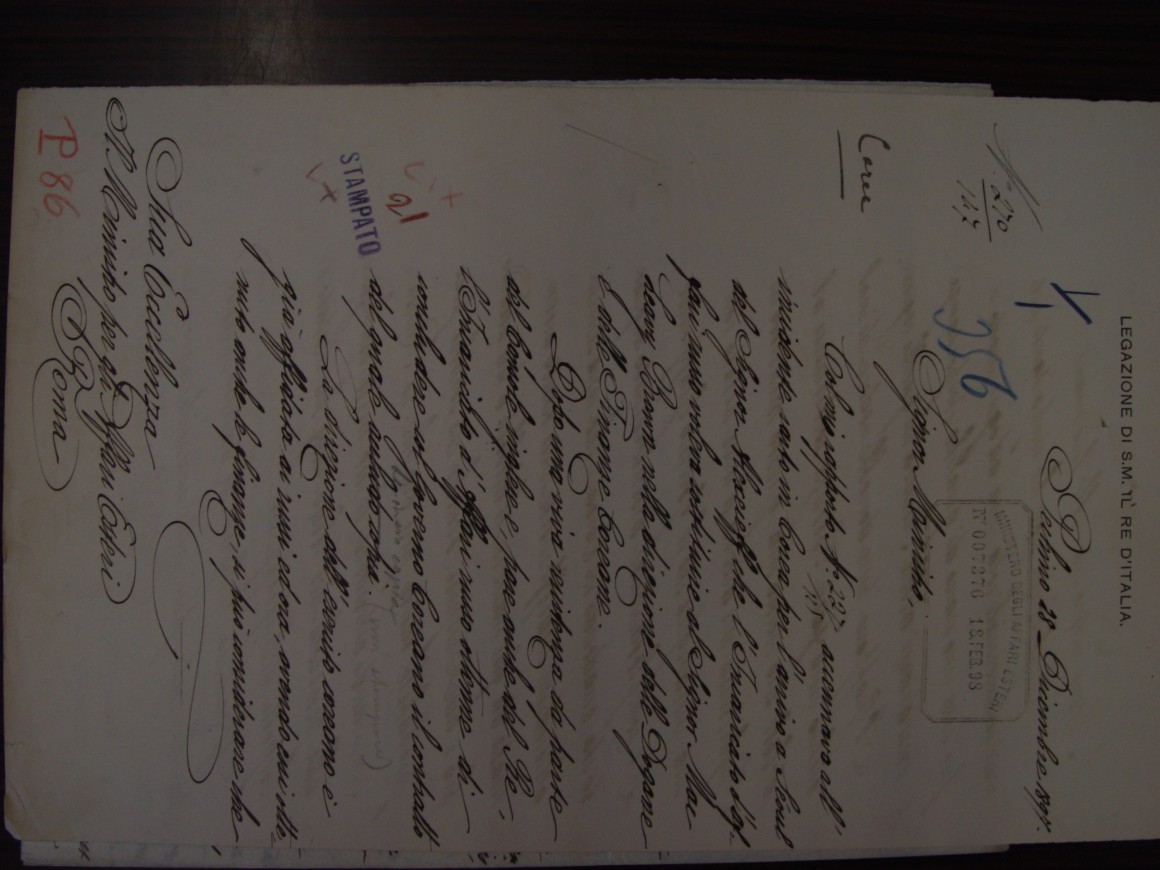 LEGAZIONE DI S.M. IL RE D'ITALIA.
Pekino 28 Dicembre 1897.
MINISTERO DEGLI AFFARI ESTERI
N° 007376 18 FEB. 98
N. 270
147
356
Corea
Signor Ministro,
Col mio rapporto N. 227 accennavo all'
incidente nato in Corea per l'arrivo a Seul
del Signor Alexieff che l'Incaricato d'Af-
fari russo voleva sostituire al Signor Mac
Leavy Brown nella direzione delle Dogane
e delle Finanze Coreane.
Dopo una viva resistenza da parte
del Console inglese e, pare anche del Re,
l'Incaricato d'Affari russo ottenne di
concludere col Governo Coreano il contratto
del quale accludo copia.
(non stampare)
STAMPATO
21
La direzione dell'esercito coreano è
già affidata ai russi ed ora, avendo essi otte-
nuto anche le finanze, si può considerare che
Sua Eccellenza
Il Ministro per gli Affari Esteri
Roma
P 86